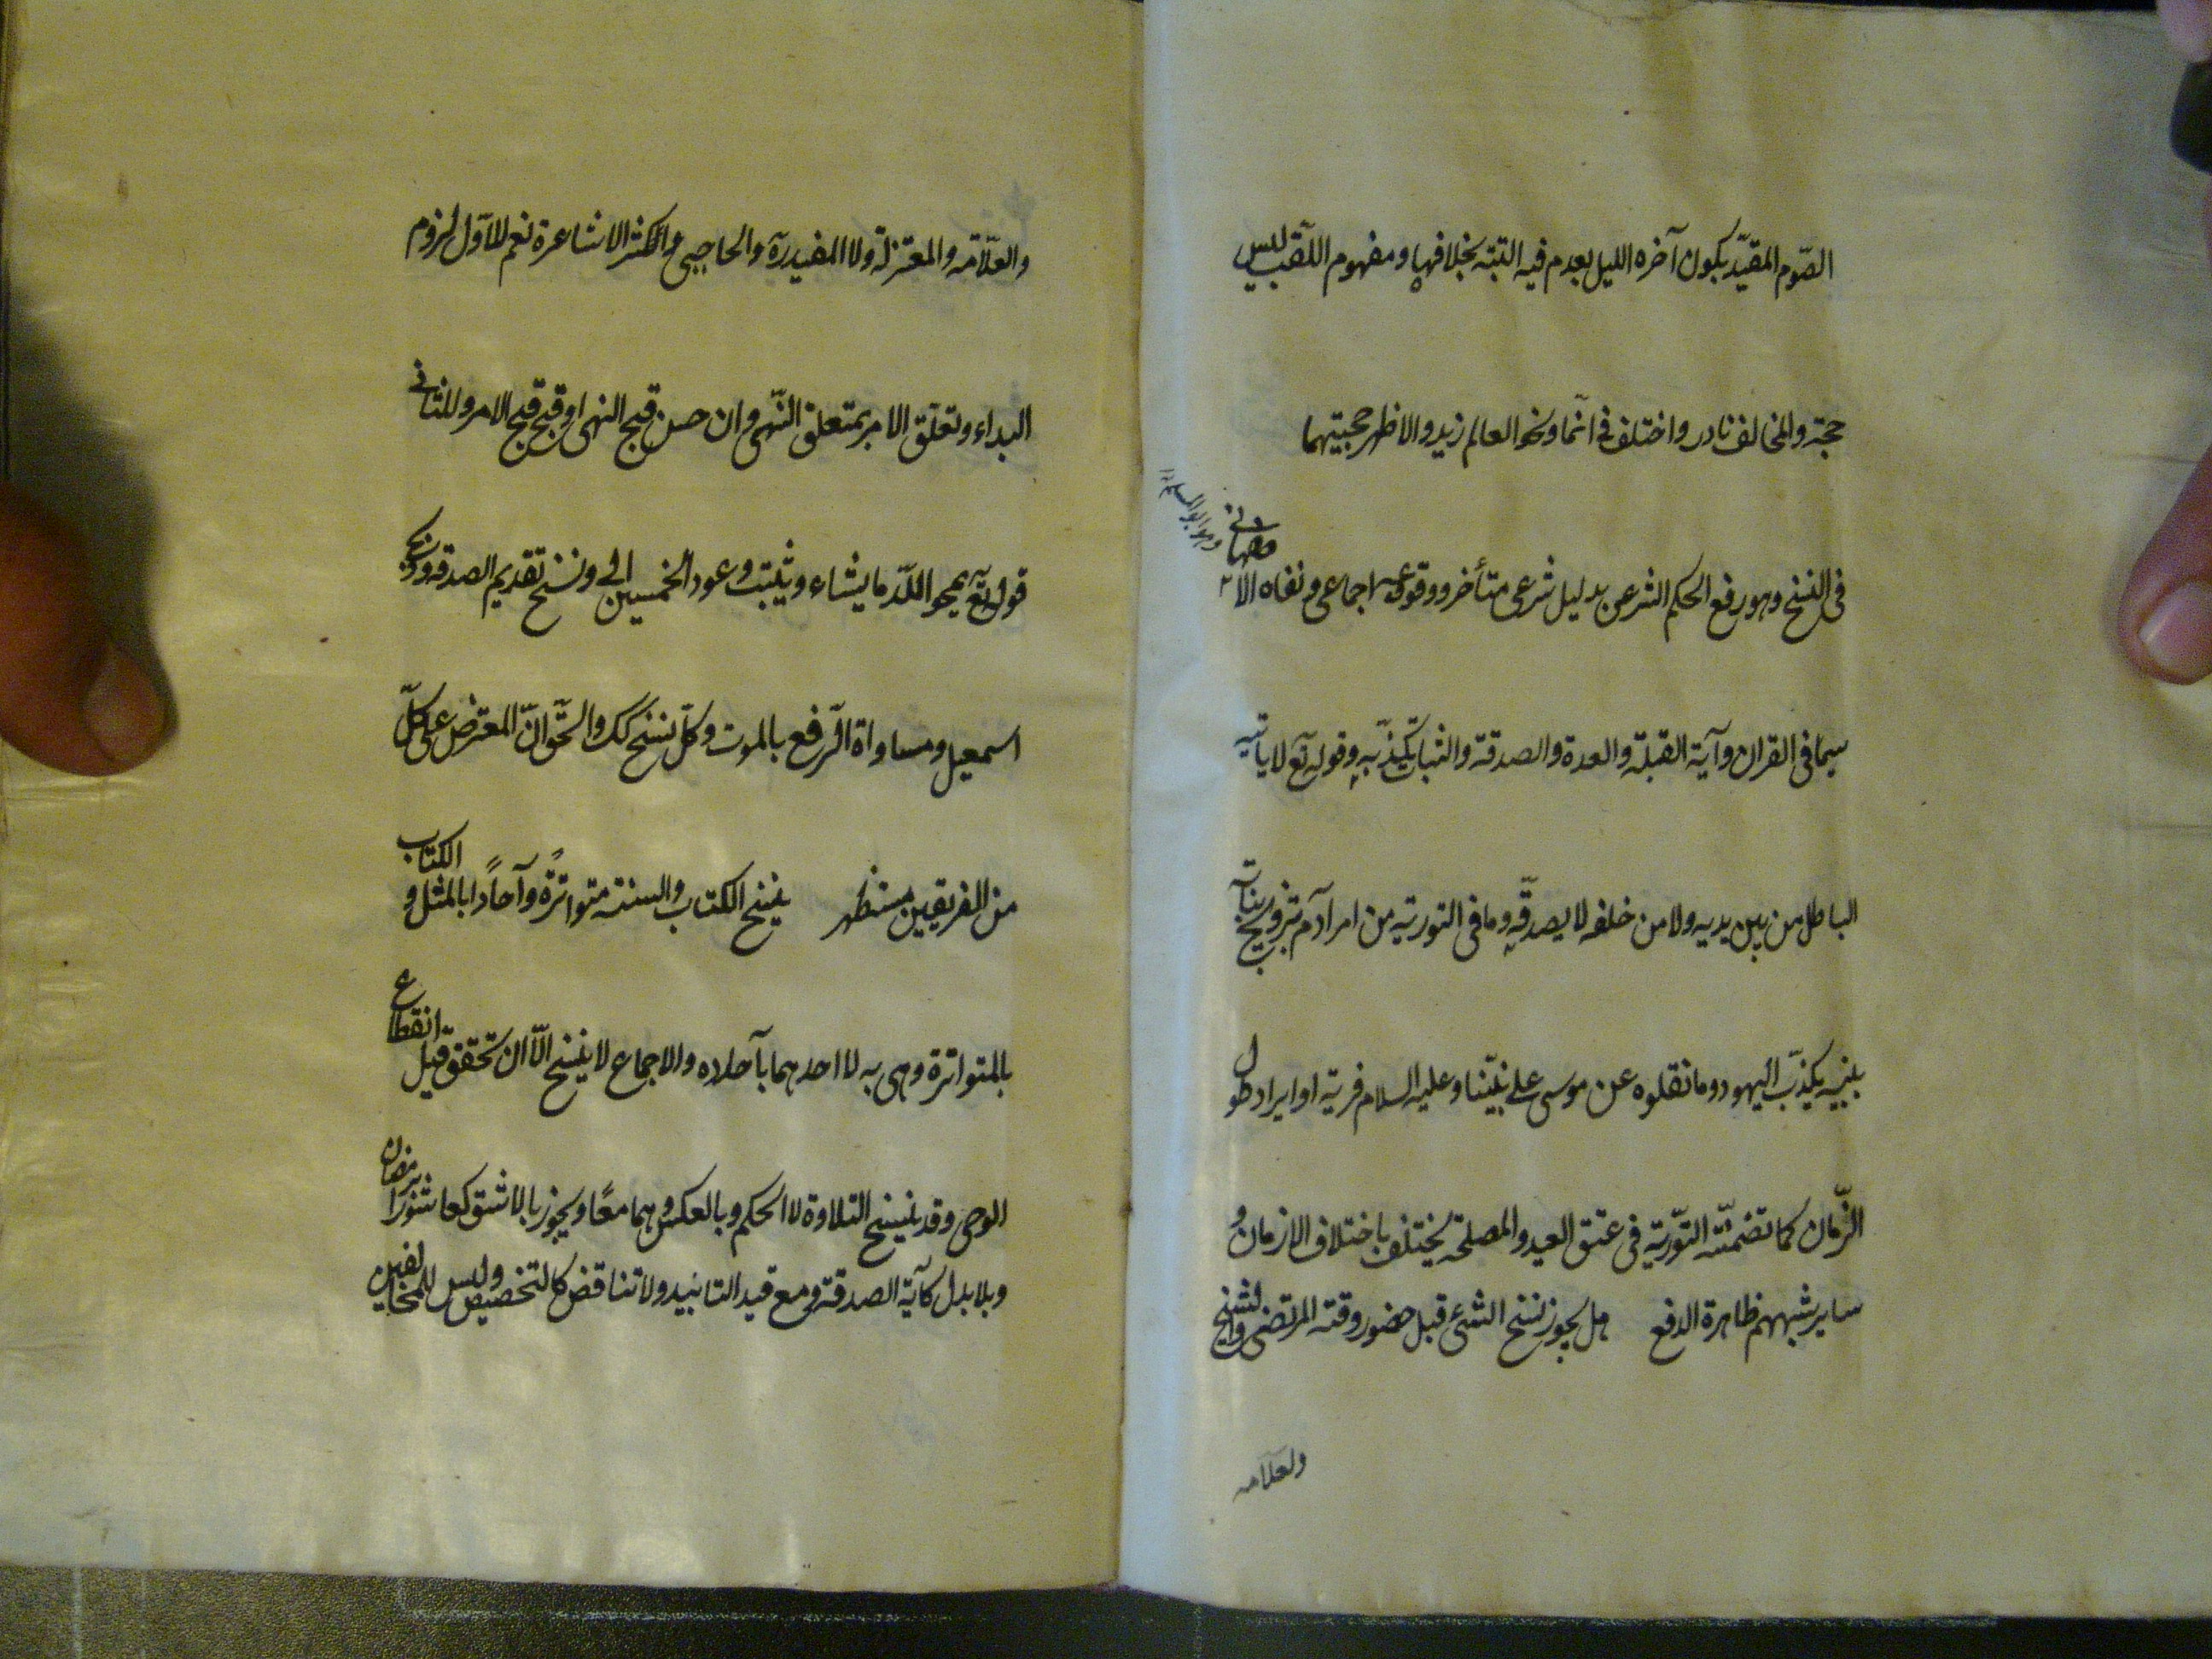 الصّوم المقيّد بكون آخره الليل بعدم فيه البتة بخلافها ومفهوم اللّقب ليس
حجة والمخالف نادر واختلف في انّما ونحو العالم زيد والاظهر حجيتهما
في النسخ وهو رفع الحكم الشرعي بدليل شرعي متأخر ووقوعه اجماعي ونفاه الاصفهاني
وهو ابو المسلم ١٢
سيما في القران وآية القبلة والعدة والصدقة والثبات تكذّبه وقوله تعٓ لا ياتيه
الباطل من بين يديه ولا من خلفه لا يصدقه وما في التورية من امر آدم بتزويج بناته
بنيه يكذّب اليهود وما نقلوه عن موسى على نبيّنا وعليه السلام فرية او ايراد طول
الزّمان كما تضمنّته التّورية في عتق العبد والمصلحة يختلف باختلاف الازمان و
ساير شبههم ظاهرة الدفع هل يجوز نسخ الشئ قبل حضور وقته المرتضى والشيخ
والعلّامه
والعلّامة والمعتزلة لا والمفيد رهٓ والحاجبى واكثر الاشاعرة نعم للاوّل لزوم
البداء وتعلّق الامر بمتعلق النّهى وان حسن قبح النهى او قبح قبح الامر وللثانى
قوله تعٓ يمحو اللّه ما يشاء ويثبت وعود الخمسين الى ونسخ تقديم الصدقه وذبح
اسمعيل ومساواة الرّفع بالموت وكلّ نسخ كك والحّق انّ المعترض على كلّ
من الفريقين مستظهر ينسخ الكتاب والسنة متواترةً وآحاداً بالمثل والكتاب
بالمتواترة وهى به لا احدهما بآحاده والاجماع لا ينسخ الّا ان تحقق قبل انقطاع
الوحى وقد ينسخ التلاوة لا الحكم وبالعكس وهما معًا ويجوز بالاشق كعاشورا برمضان
وبلا بدل كآية الصدقة ومع قيد التابيد ولا تناقض كالتخصيص وليس للمخالفين